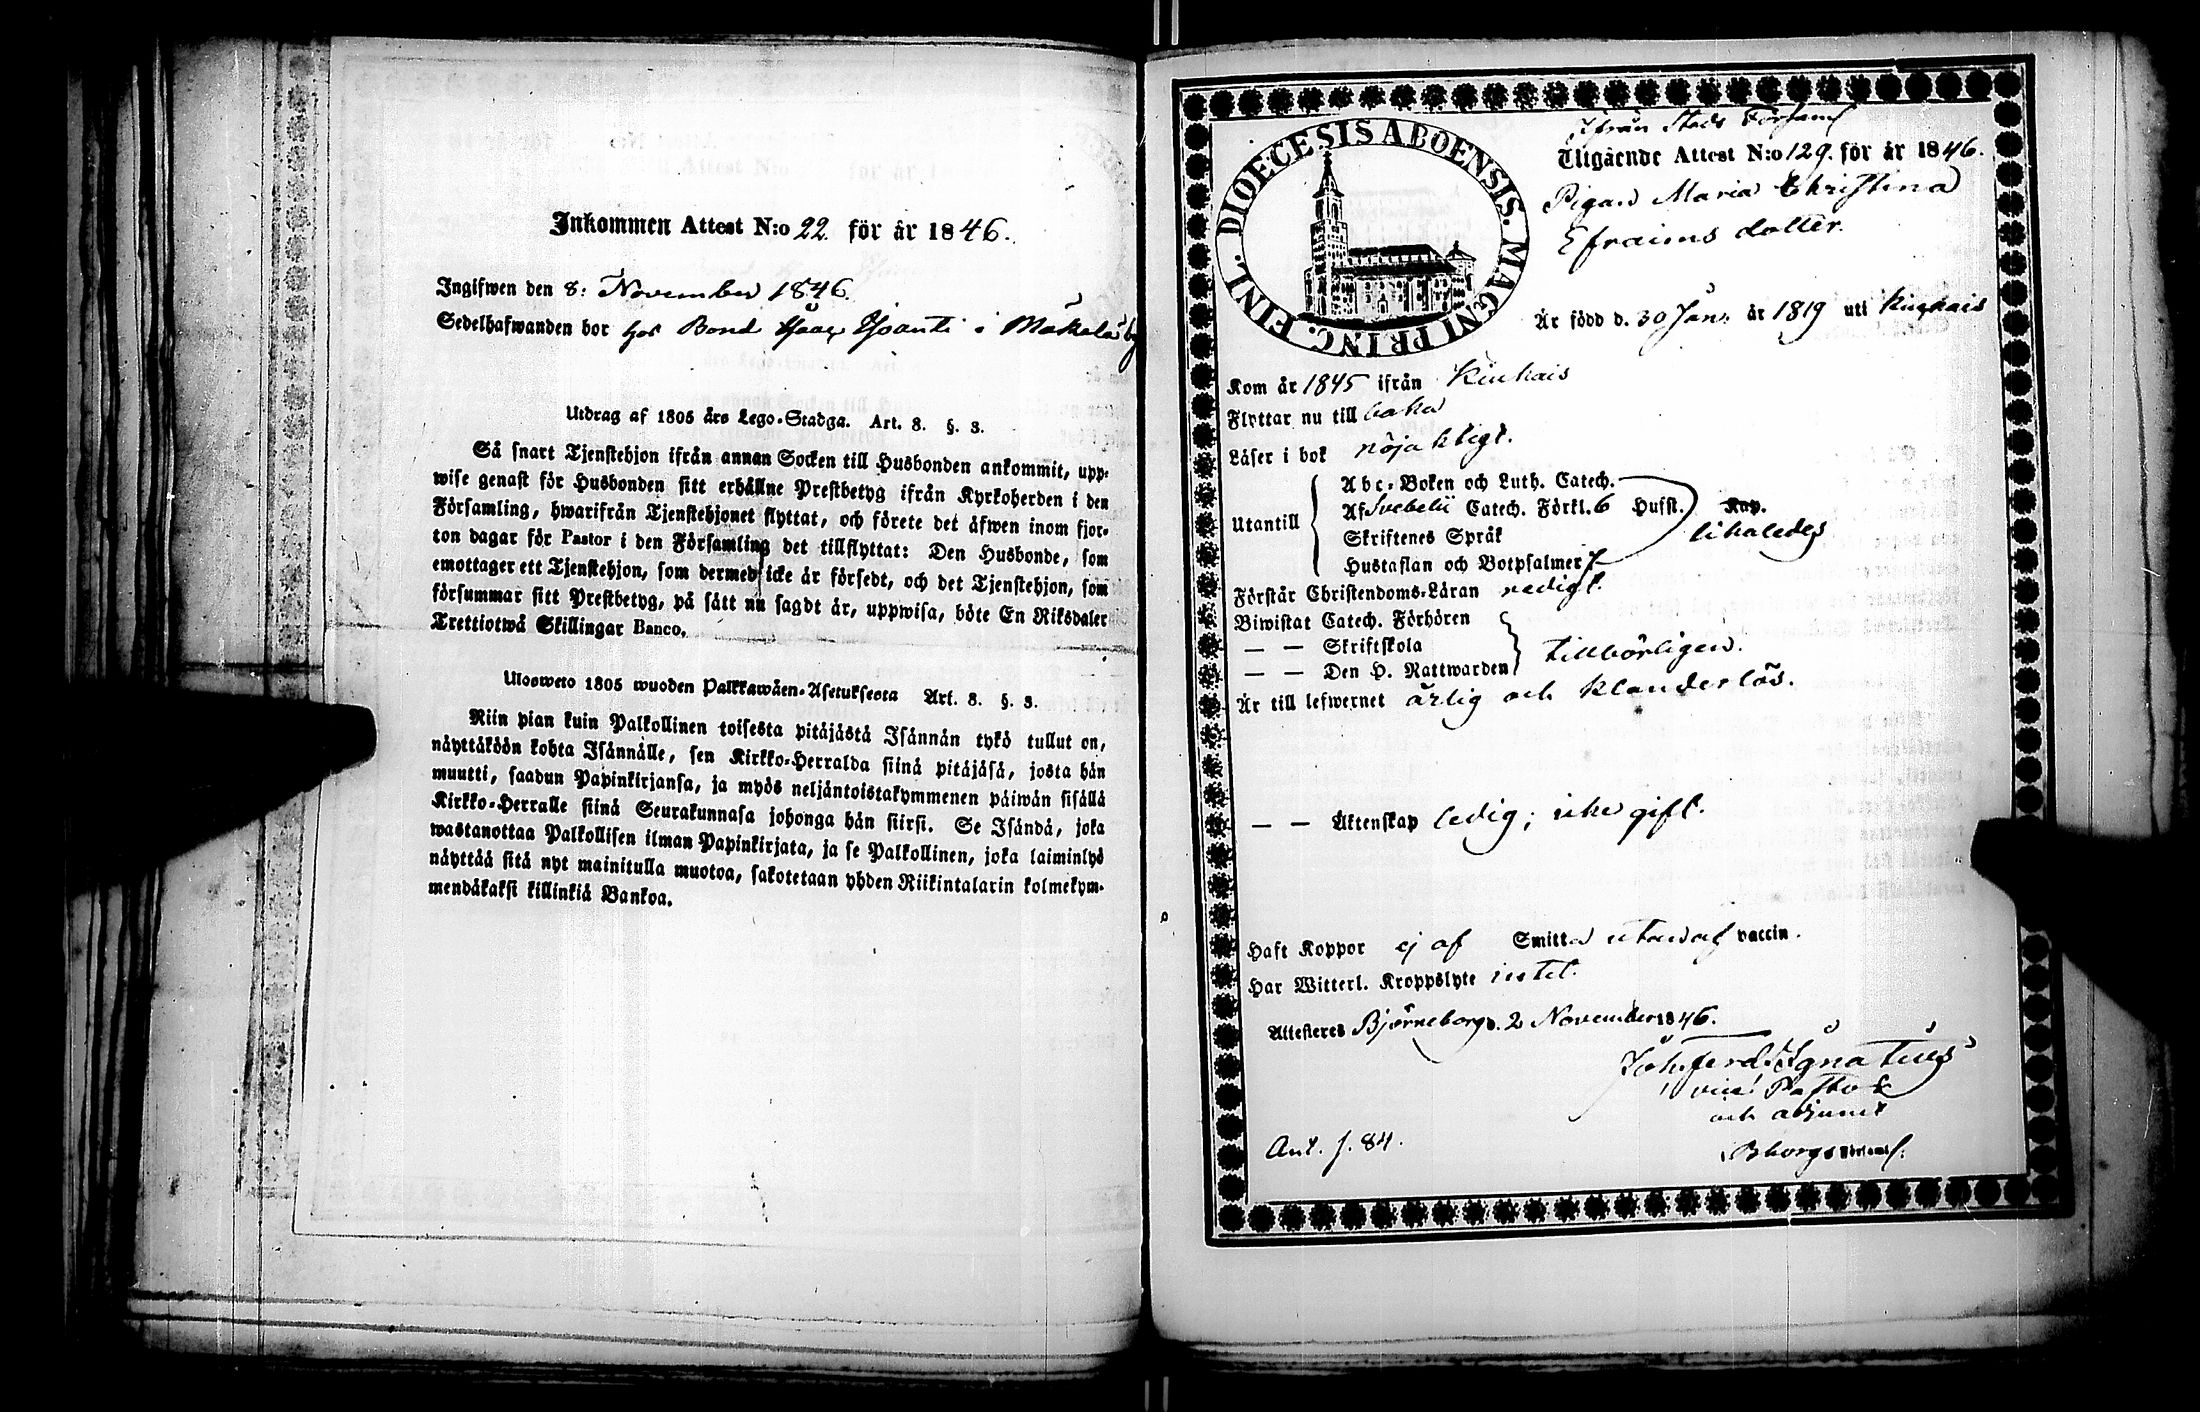 Inkommen Attest N:o 22. för år 1846.
Ingifwen den 8: November 1846.
Sedelhafwanden bor hos Bond i Mäkelä by
Utdrag af 1805 års Lego-Stadga. Art. 8. §. 3.
Så snart Tjenstehjon ifrån annan Socken till Husbonden ankommit, upp-
wise genast för Husbonden sitt erhållne Prestbetyg ifrån Kyrkoherden i den
Församling, hwarifrån Tjenstehjonet flyttat, och förete det äfwen inom fjor-
ton dagar för Pastor i den Församling det tillflyttat: Den Husbonde, som
emottager ett Tjenstehjon, som dermed icke är försedt, och det Tjenstehjon, som
försummar sitt Prestbetyg, på sätt nu sagdt är, uppwisa, böte En Riksdaler
Trettiotwå Skillingar Banco.
Ulosweto 1805 wuoden Palkkawäen-Asetuksesta Art. 8. §. 3.
Niin pian kuin Palkollinen toisesta pitäjästä Isännän tykö tullut on,
näyttäköön kohta Isännälle, sen Kirkko-Herralda siinä pitäjäsä, josta hän
muutti, saadun Papinkirjansa, ja myös neljäntoistakymmenen päiwän sisällä
Kirkko-Herralle siinä Seurakunnasa johonga hän siirsi. Se Isändä, joka
wastanottaa Palkollisen ilman Papinkirjata, ja se Palkollinen, joka laiminlyö
näyttää sitä nyt mainitulla muotoa, sakotetaan yhden Riikintalarin kolmekym-
mendäkaksi killinkiä Bankoa.
DIOECESIS ABOENSIS. MAGNI PRINC. FINL.
Ifrån Stads Församl
Utgående Attest N:o 129. för år 1846.
Pigan Maria Christina
Efraims dotter.
Är född d. 30 Jan. år 1819 uti Kiukais
Kom år 1845 ifrån Kiukais
Flyttar nu till baka
Läser i bok nöjaktigt.
Utantill
Abc-Boken och Luth. Catech.
Af Svebelii Catech. Förkl. 6 Hufst. Kap.
Skriftenes Språk
Hustaflan och Botpsalmer 7
likaledes
Förstår Christendoms-Läran redigt.
Biwistat Catech. Förhören
— — Skriftskola
— — Den H. Nattwarden
tillbörligen.
Är till lefwernet ärlig och klanderlös.
— — Äktenskap ledig; icke gift.
Haft Koppor ej af Smitta utan af vaccin.
Har Witterl. Kroppslyte intet.
Attesteres Björneborg d. 2 November 1846.
Joh. Ferd. Ignatius
vice Pastor
och adjunct
Bborgs Församl.
Ant. f. 84.